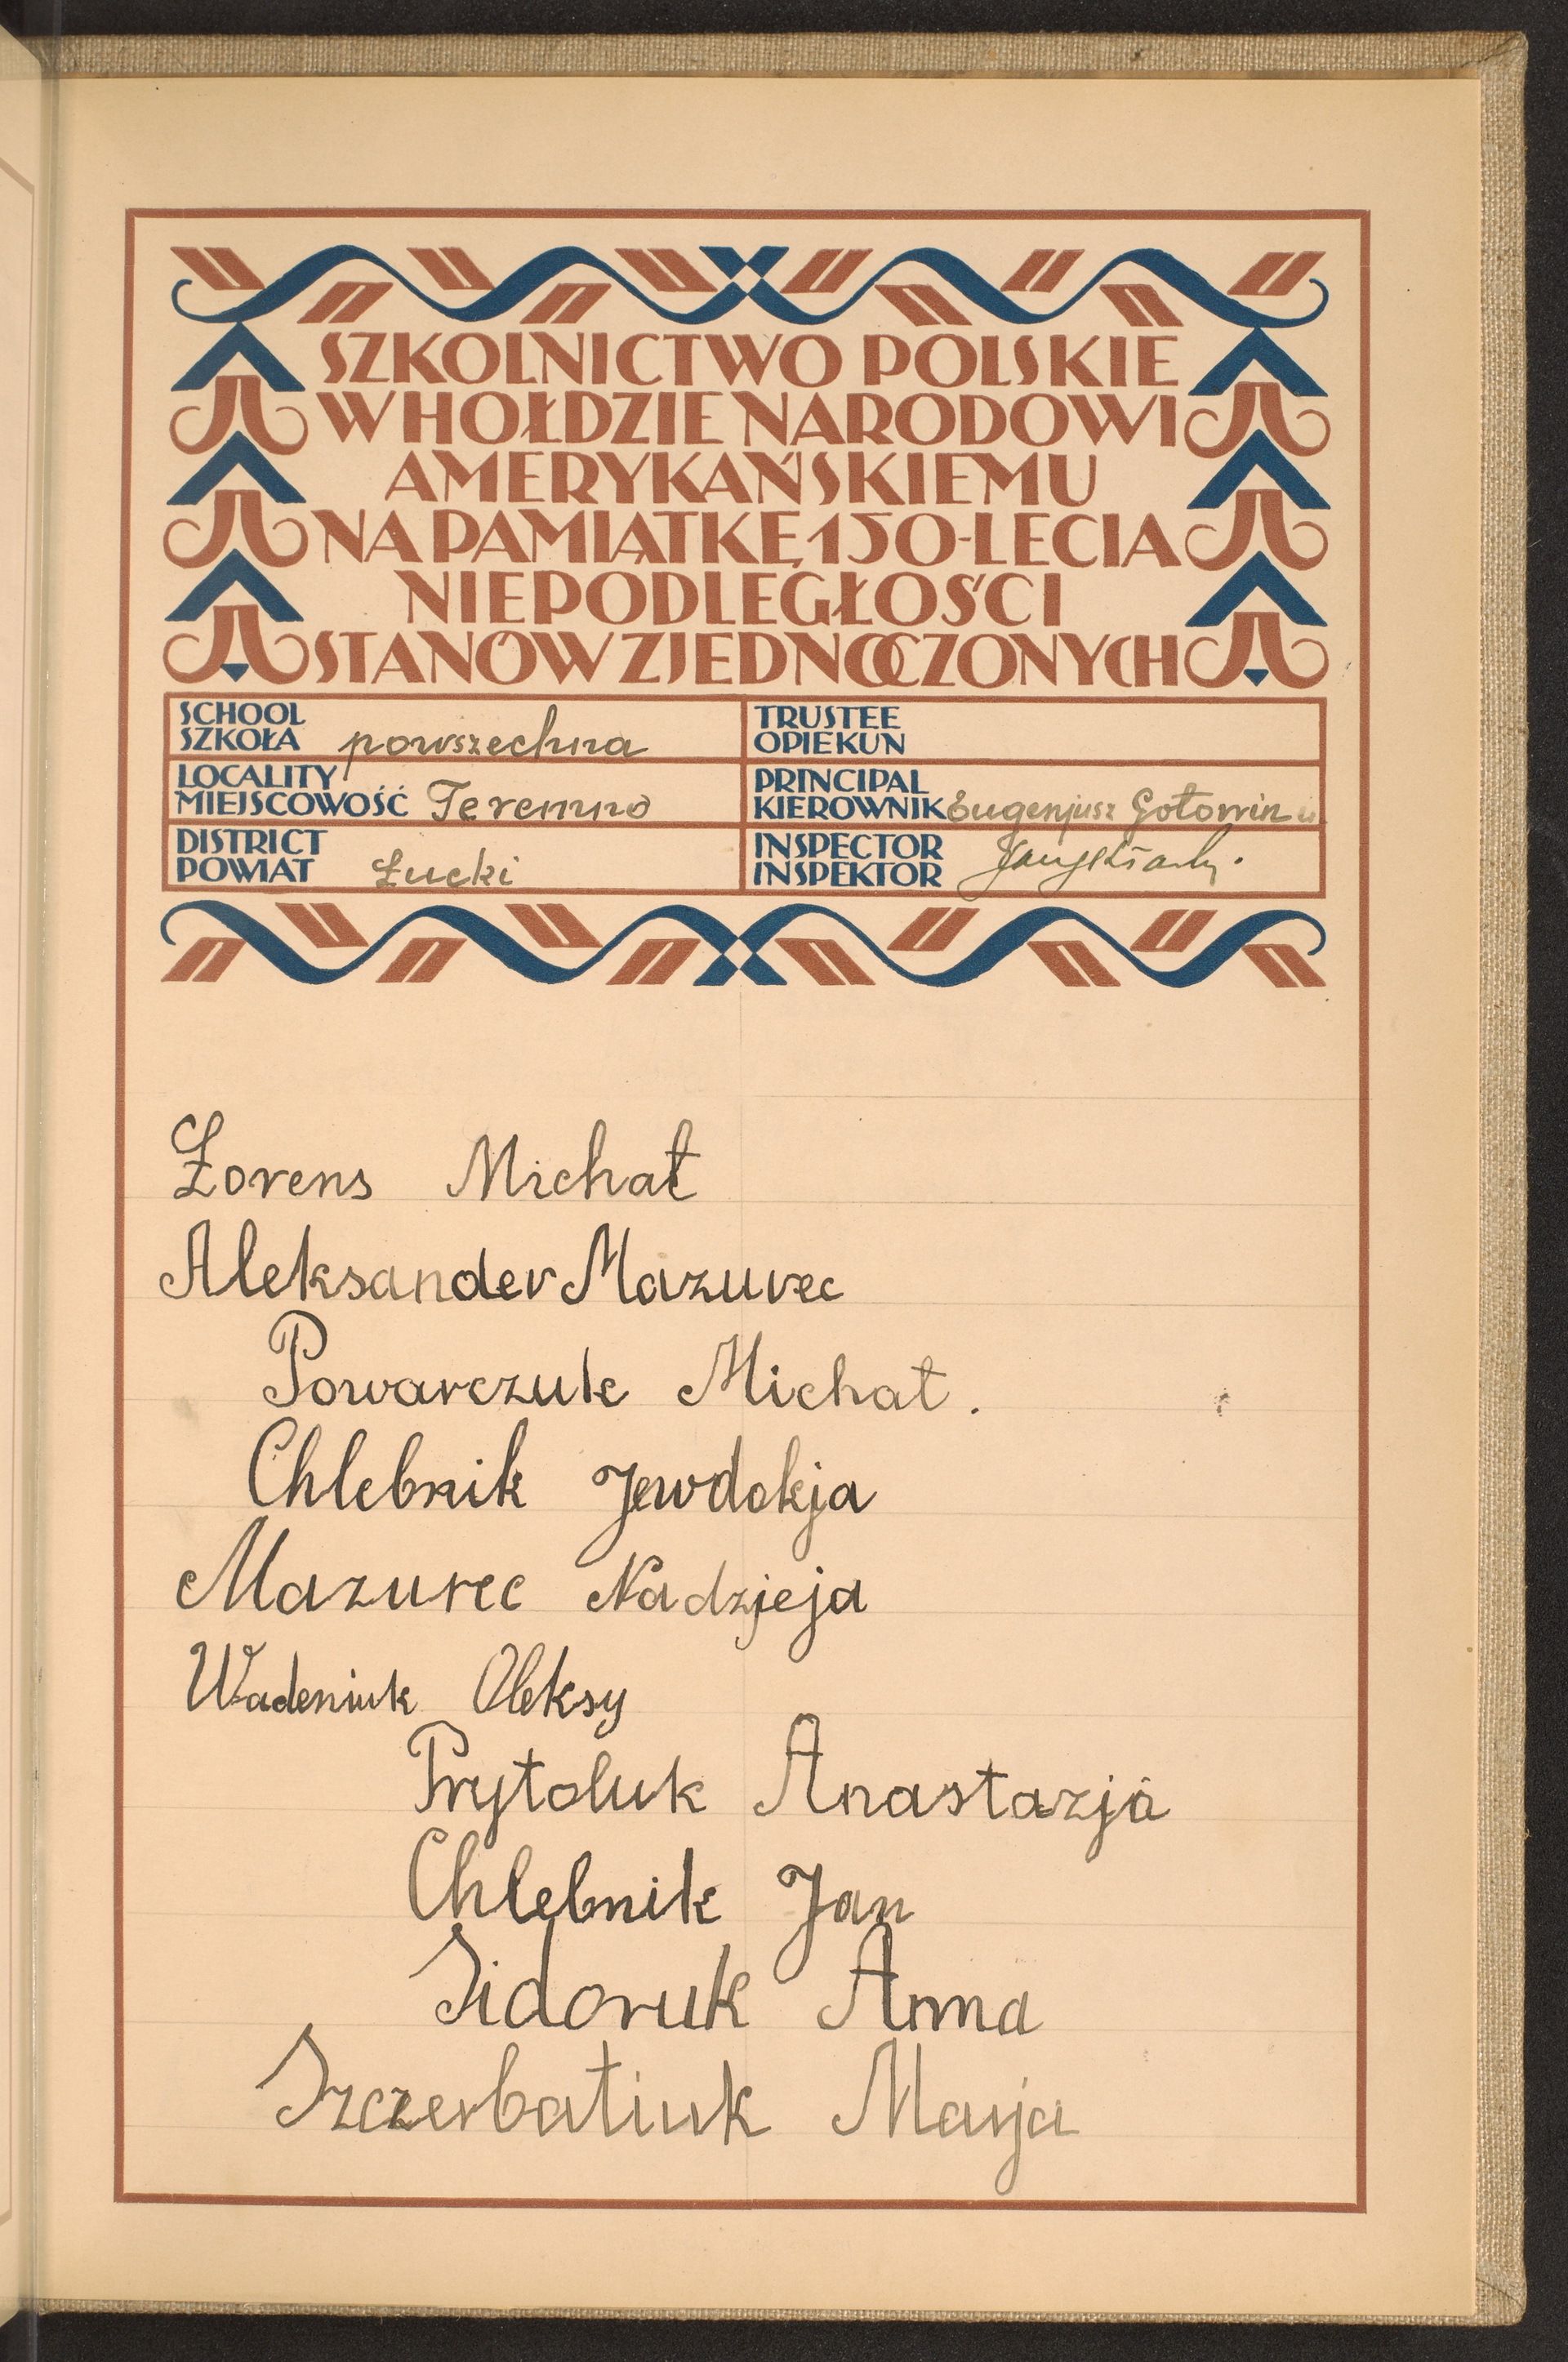 SZKOLNICTWO POLSKIE
W HOŁDZIE NARODOWI
AMERYKAŃSKIEMU
NA PAMIĄTKĘ 150-LECIA
NIEPODLEGŁOŚCI
STANÓW ZJEDNOCZONYCH
SCHOOL
SZKOŁA powszechna
TRUSTEE
OPIEKUN
LOCALITY
MIEJSCOWOŚĆ Teremno
PRINCIPAL
KIEROWNIK Eugenjusz
DISTRICT
POWIAT Łucki
INSPECTOR
INSPEKTOR
Łorens Michał
Aleksander Mazurec
Powarczuk Michał.
Chlebnik Jewdokja
Mazurec Nadzjeja
Wadeniuk Oleksy
Prytoluk Anastazja
Chlebnik Jan
Sidoruk Anna
Szczerbatiuk Marja